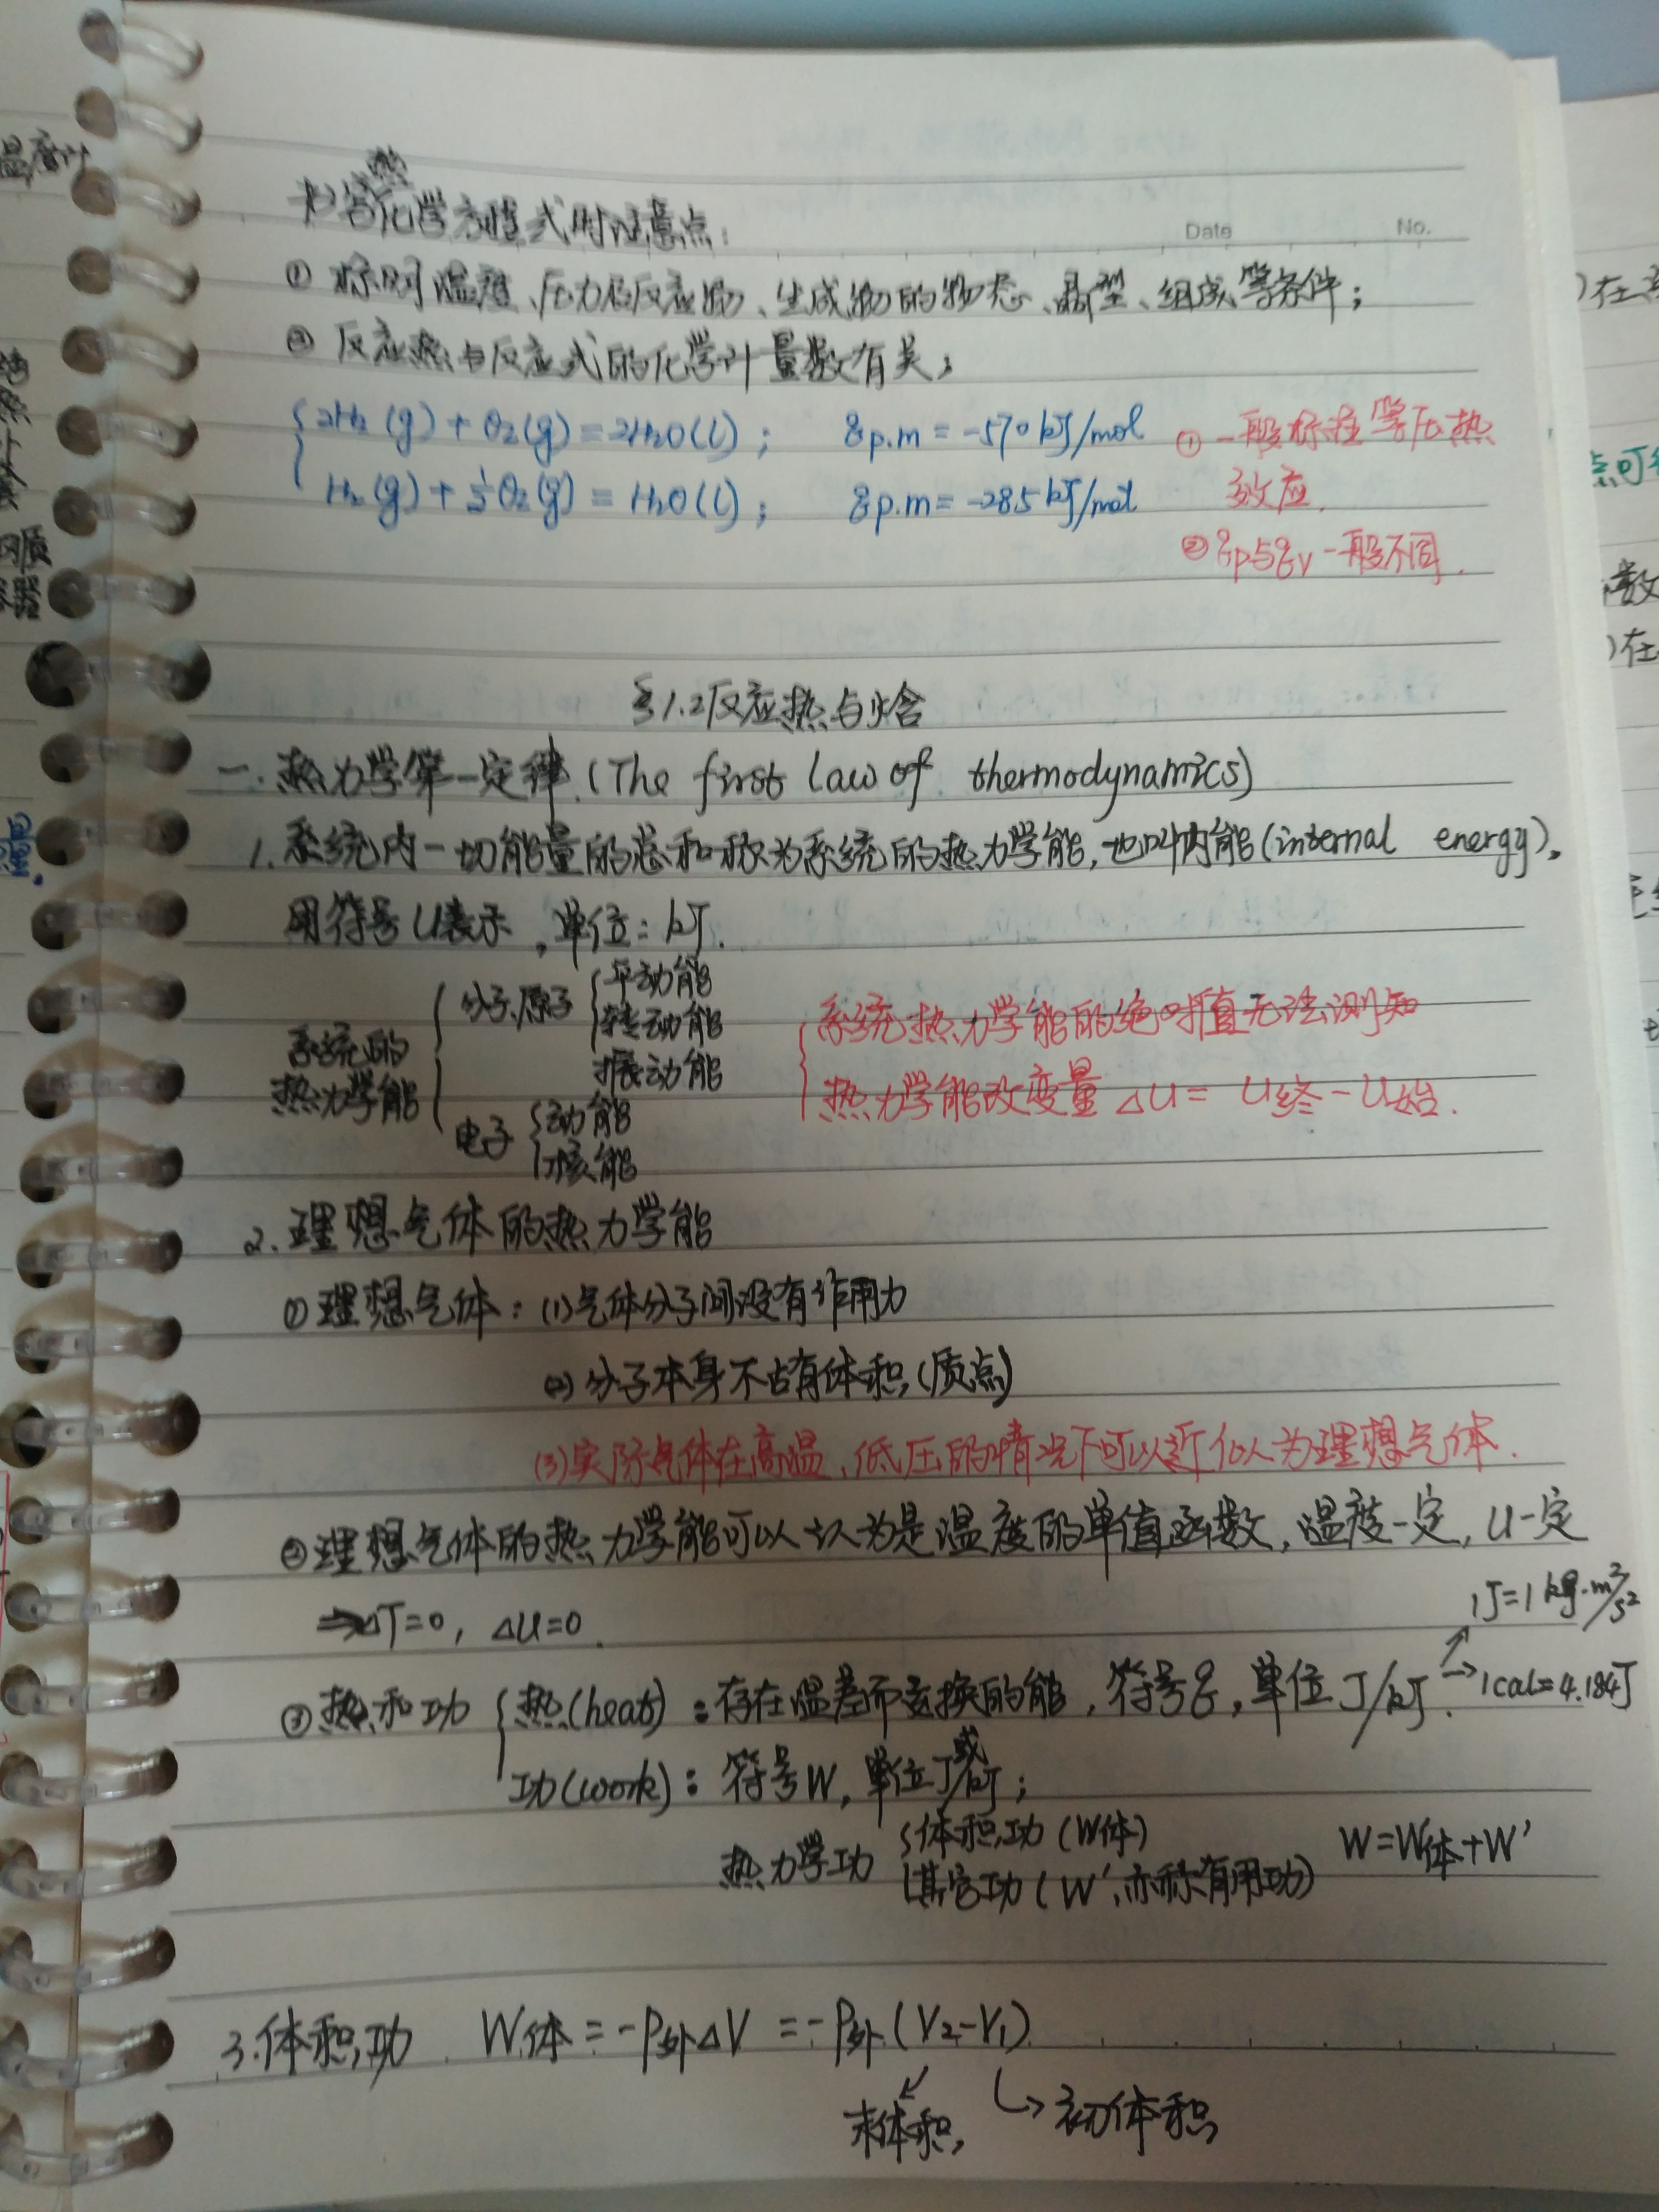 书写热化学方程式时注意点:
Date No.
① 标明温度、压力及反应物、生成物的物态、晶型、组成等条件;
② 反应热与反应式的化学计量数有关;
2H₂(g)+O₂(g)=2H₂O(l); qp.m=-570kJ/mol
① 一般标注等压热
效应.
H₂(g)+½O₂(g)=H₂O(l); qp.m=-285kJ/mol
② qp与qv一般不同.
§1.2反应热与焓
一.热力学第一定律.(The first law of thermodynamics)
1.系统内一切能量的总和称为系统的热力学能,也叫内能(internal energy).
用符号U表示,单位:kJ.
系统的
热力学能
分子.原子
平动能
转动能
振动能
电子
动能
核能
系统热力学能的绝对值无法测知
热力学能改变量 ΔU= U终-U始.
2.理想气体的热力学能
①理想气体:(1)气体分子间没有作用力
(2)分子本身不占有体积(质点)
(3)实际气体在高温、低压的情况下可以近似认为理想气体.
②理想气体的热力学能可以认为是温度的单值函数,温度一定,U一定
⇒ΔT=0, ΔU=0.
1J=1kg·m²/s²
③热和功
热(heat):存在温差而交换的能,符号q,单位J/kJ. →1cal=4.184J
功(work):符号W,单位J或kJ;
热力学功
体积功(W体)
其它功(W′,亦称有用功)
W=W体+W′
3.体积功 W体=-P外ΔV=-P外(V₂-V₁)
末体积
初体积
温度计
质
器
)在
点可
数
)在